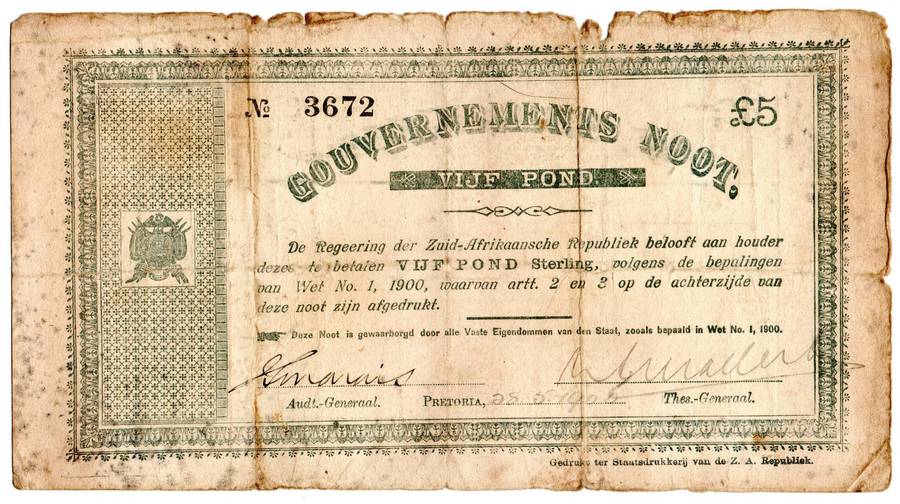 № 3672
£5
GOUVERNEMENTS NOOT.
VIJF POND.
De Regeering der Zuid-Afrikaansche Republiek belooft aan houder
dezes te betalen VIJF POND Sterling, volgens de bepalingen
van Wet No. 1, 1900, waarvan artt. 2 en 3 op de achterzijde van
deze noot zijn afgedrukt.
Deze Noot is gewaarborgd door alle Vaste Eigendommen van den Staat, zooals bepaald in Wet No. 1, 1900.
Audt.-Generaal. PRETORIA, 28.5.1900 Thes.-Generaal.
Gedrukt ter Staatsdrukkerij van de Z. A. Republiek.